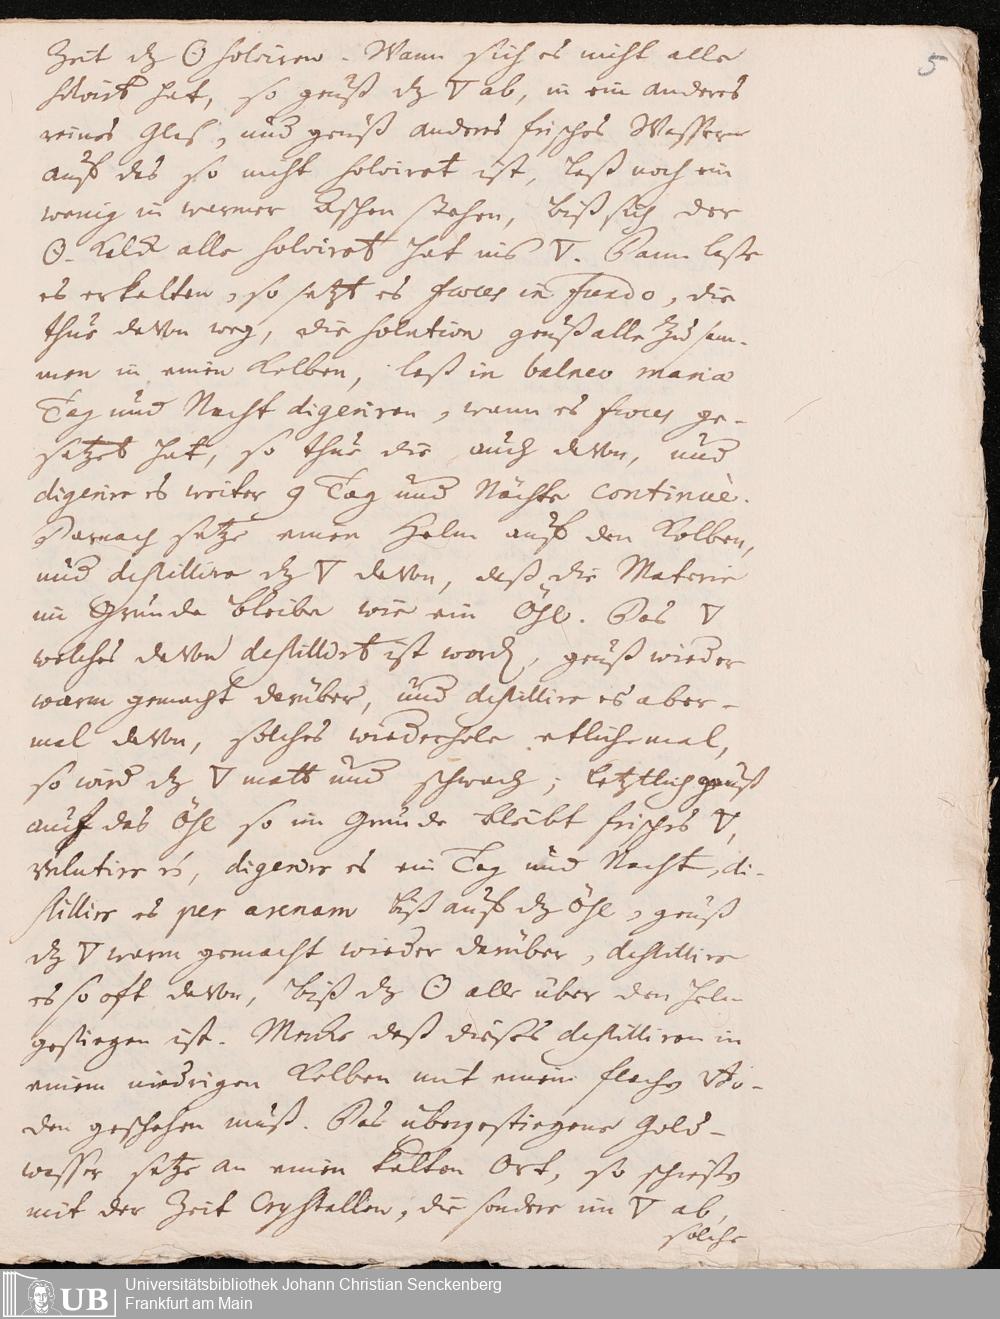 5
Zeit dz 🜔 solviren. Wann sich es nicht alle
solvirt hat, so geuß dz 🜄 ab, in ein anderes
reines Glaß, und geuß anderes frisches Wasser
auff das so nicht solviret ist, laß noch ein
wenig in warmer Aschen stehen, biß sich der
🜔 Kalck alle solviret hat ins 🜄. Dann laß
es erkalten, so setzt es fæces in fundo, die
thue davon weg, die solution geuß alle zusam-
men in einen Kolben, laß in balneo mariæ
Tag und Nacht digeriren, wann es fæces ge-
setzet hat, so thue die auch davon, und
digerire es weiter 9 Tag und Nächte continuè.
Darnach setze einen Helm auff den Kolben,
und destillire dz 🜄 davon, daß die Materie
im Grunde bleibe wie ein Öhl. Das 🜄
welches davon destillirt ist word, geuß wieder
warm gemacht darüber, und destillire es aber-
mal davon, solches wiederhole etlichemal,
so wird dz 🜄 matt und schwach; letztlich geuß
auf das Öhl so im Grunde bleibt frisches 🜄,
solutire es, digerire es ein Tag und Nacht, di-
stillire es per arenam biß auff dz Öhl, geuß
dz 🜄 warm gemacht wieder darüber, destillire
es so oft davon, biß dz 🜔 alle über den Helm
gestiegen ist. Mercke daß dieses destilliren in
einem niedrigen Kolben mit einem flachen Bo-
den geschehen muß. Das übergestiegene Gold-
wasser setze an einen kalten Ort, so schießen
mit der Zeit Crystallen, die sondere im 🜄 ab,
solche
UB
Universitätsbibliothek Johann Christian Senckenberg
Frankfurt am Main